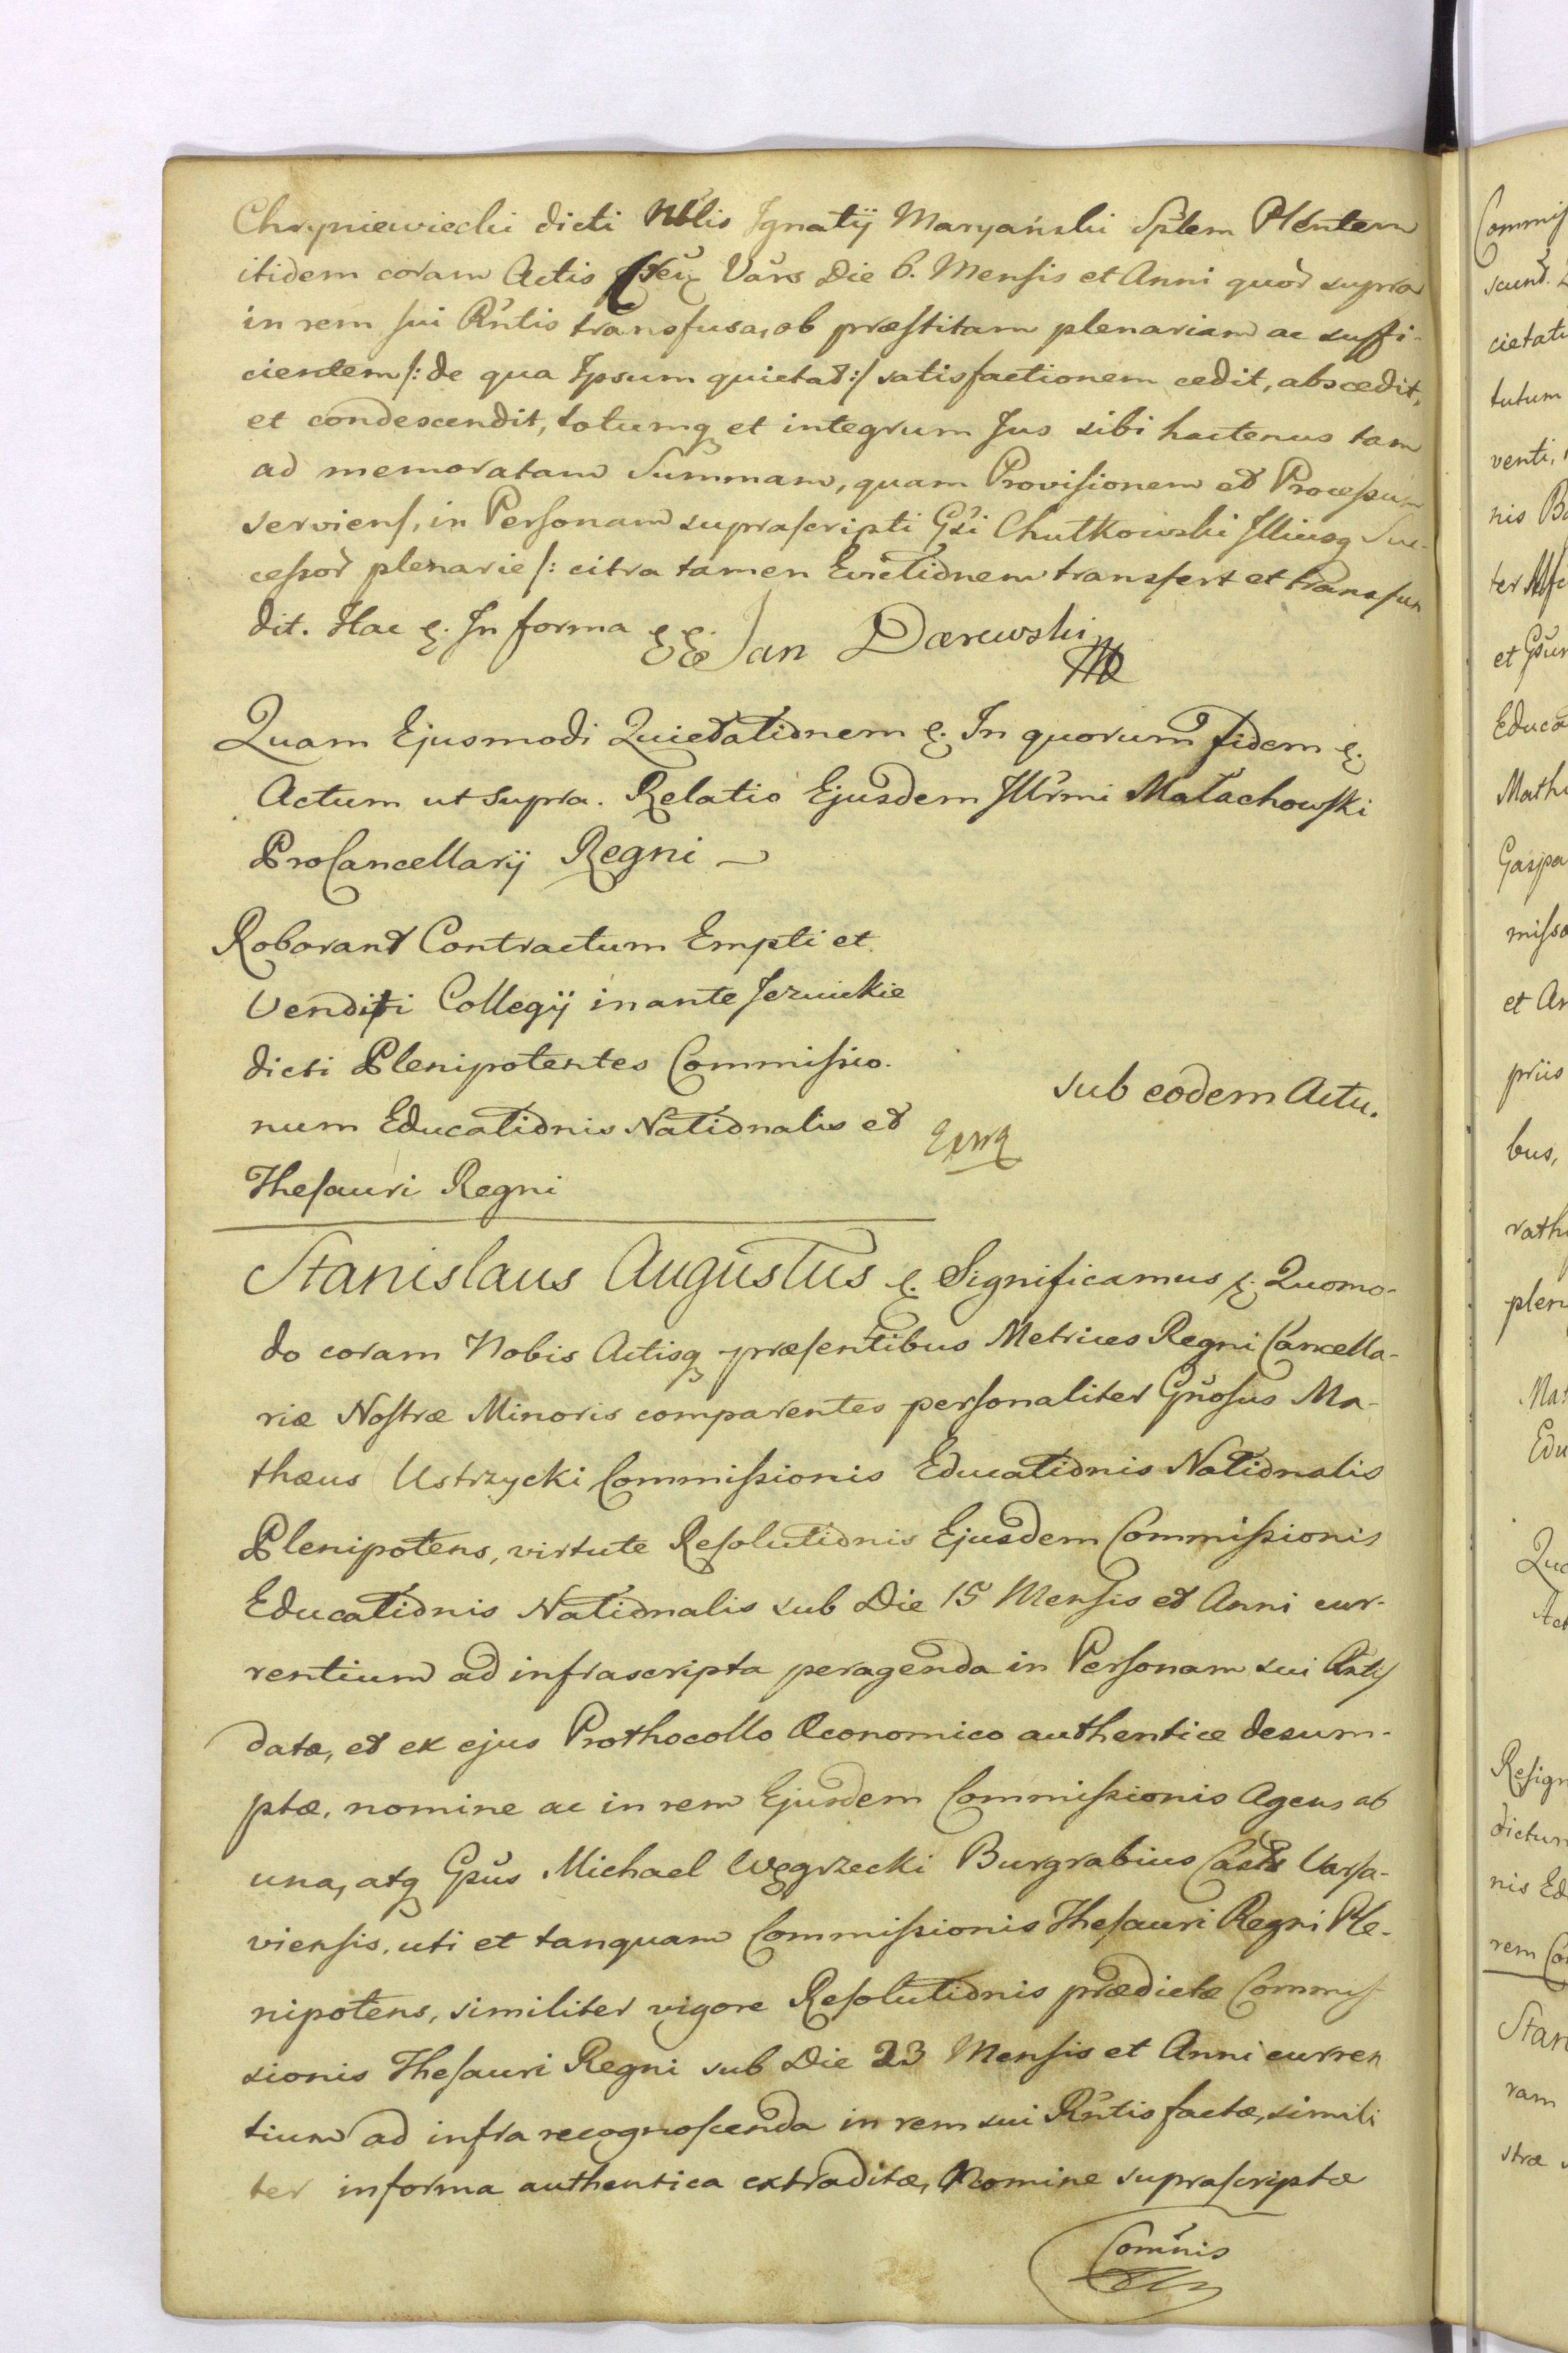 Chryniewiecki dicti Nblis Ignatij Maryański Spłem Plentem
itidem coram Actis Vars Die 6. Mensis et Anni quor supra
in rem sui Rntis transfusa, ob præstitam plenariam ac suffi-
cientem /: de qua Ipsum quietat :/ satisfactionem cedit, abscedit,
et condescendit, totumq et integrum Jus sibi hactenus tam
ad memoratam Summam, quam Provisionem et Processum
serviens, in Personam suprascripti Gsi Chutkowski Illiusq Suc-
cessor plenarie /: citra tamen Evictionem transfert et transfun
dit. Hac &. In forma &&. Jan Darewski
Quam Ejusmodi Quietationem &. In quorum fidem &.
Actum ut supra. Relatio Ejusdem Illrmi Małachowski
ProCancellarij Regni
Roborant Contractum Empti et
Venditi Collegij in ante Jezuickie
dicti Plenipotentes Commissio.
num Educationis Nationalis et
Thesauri Regni
sub eodem Actu.
Stanislaus Augustus &. Significamus &. Quomo-
do coram Nobis Actisq præsentibus Metrices Regni Cancella-
riæ Nostræ Minoris comparentes personaliter Gnosus Ma-
thæus Ustrzycki Commissionis Educationis Nationalis
Plenipotens, virtute Resolutionis Ejusdem Commissionis
Educationis Nationalis sub Die 15 Mensis et Anni cur-
rentium ad infrascripta peragenda in Personam sui Rntis
datæ, et ex ejus Prothocollo Œconomico authentice desum-
ptæ, nomine ac in rem Ejusdem Commissionis Agens ab
una, atq Gsus Michael Węgrzecki Burgrabius Castr Varsa-
viensis, uti et tanquam Commissionis Thesauri Regni Ple-
nipotens, similiter vigore Resolutionis prædictæ Commis
sionis Thesauri Regni sub Die 23 Mensis et Anni curren
tium ad infra recognoscenda in rem sui Rntis factæ, simili
ter informa authentica extraditæ, Nomine suprascriptæ
Comnis